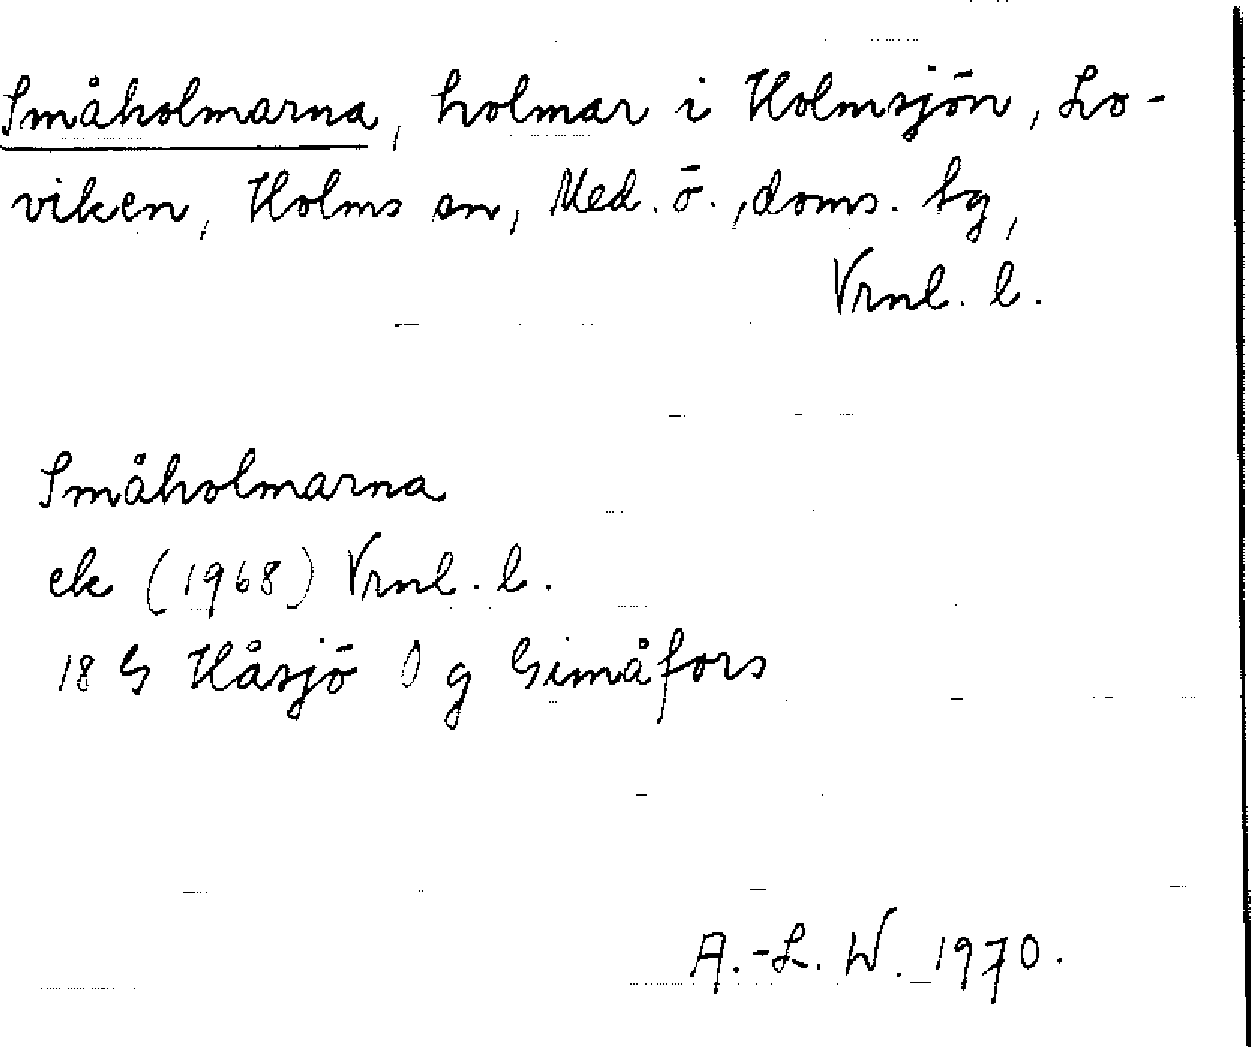 Småholmarna, holmar i Holmsjön, Lo-
viken, Holms sn, Med. ö., doms. tg,
Vrnl. l.
Småholmarna
ek (1968) Vrnl. l.
18 G Håsjö O g Gimåfors
A.-L. W. 1970.